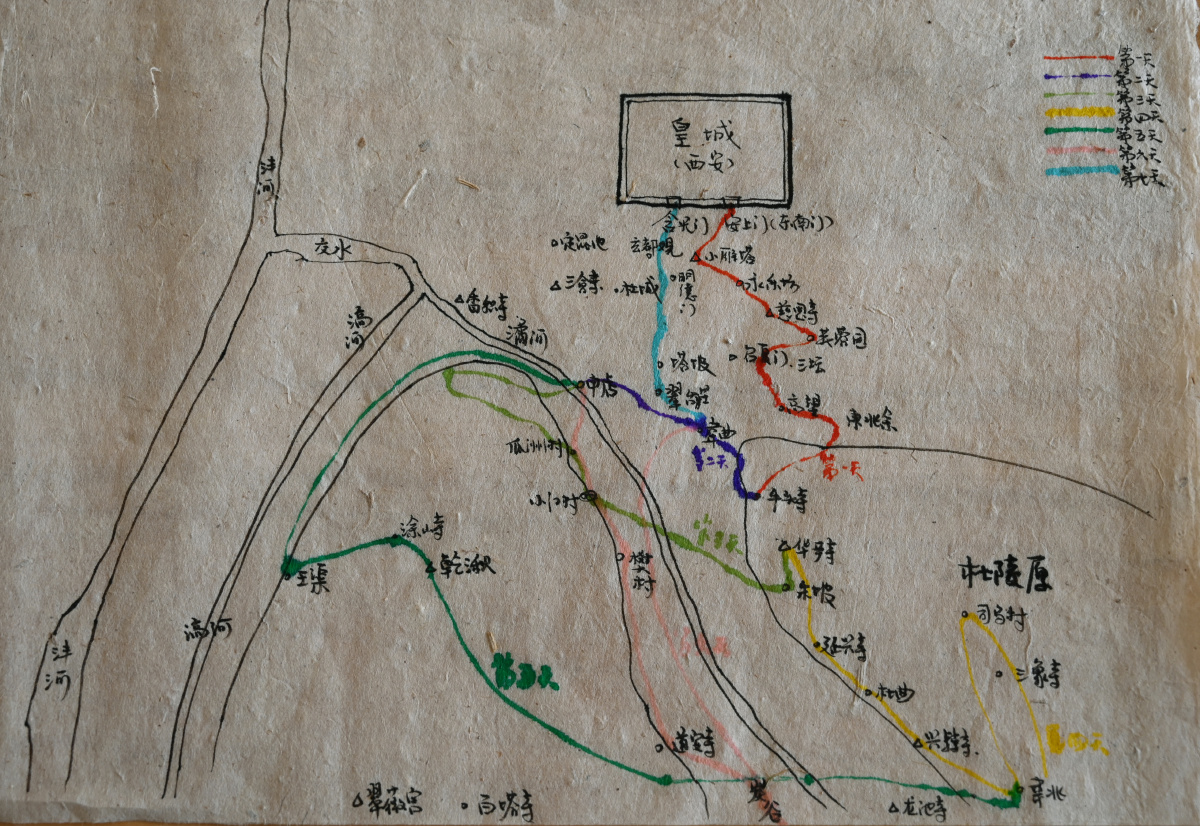 第一天
第二天
第三天
第四天
第五天
第六天
第七天
皇城
(西安)
含光门
安上门(东南门)
沣河
交水
定昆池
玄都观
小雁塔
三会寺
杜城
明德门
永乐坊
慈恩寺
香积寺
潏河
滈河
芙蓉园
启夏门
三坛
塔坡
申店
韦曲
高望
第二天
第一天
瓜洲村
牛头寺
小江村
第三天
华严寺
朱坡
杜陵原
涂山寺
乾湫
王渠
樊村
司马村
滈河
延兴寺
三像寺
沣河
第五天
杜曲
道安寺
兴教寺
第四天
翠微宫
百塔寺
龙池寺